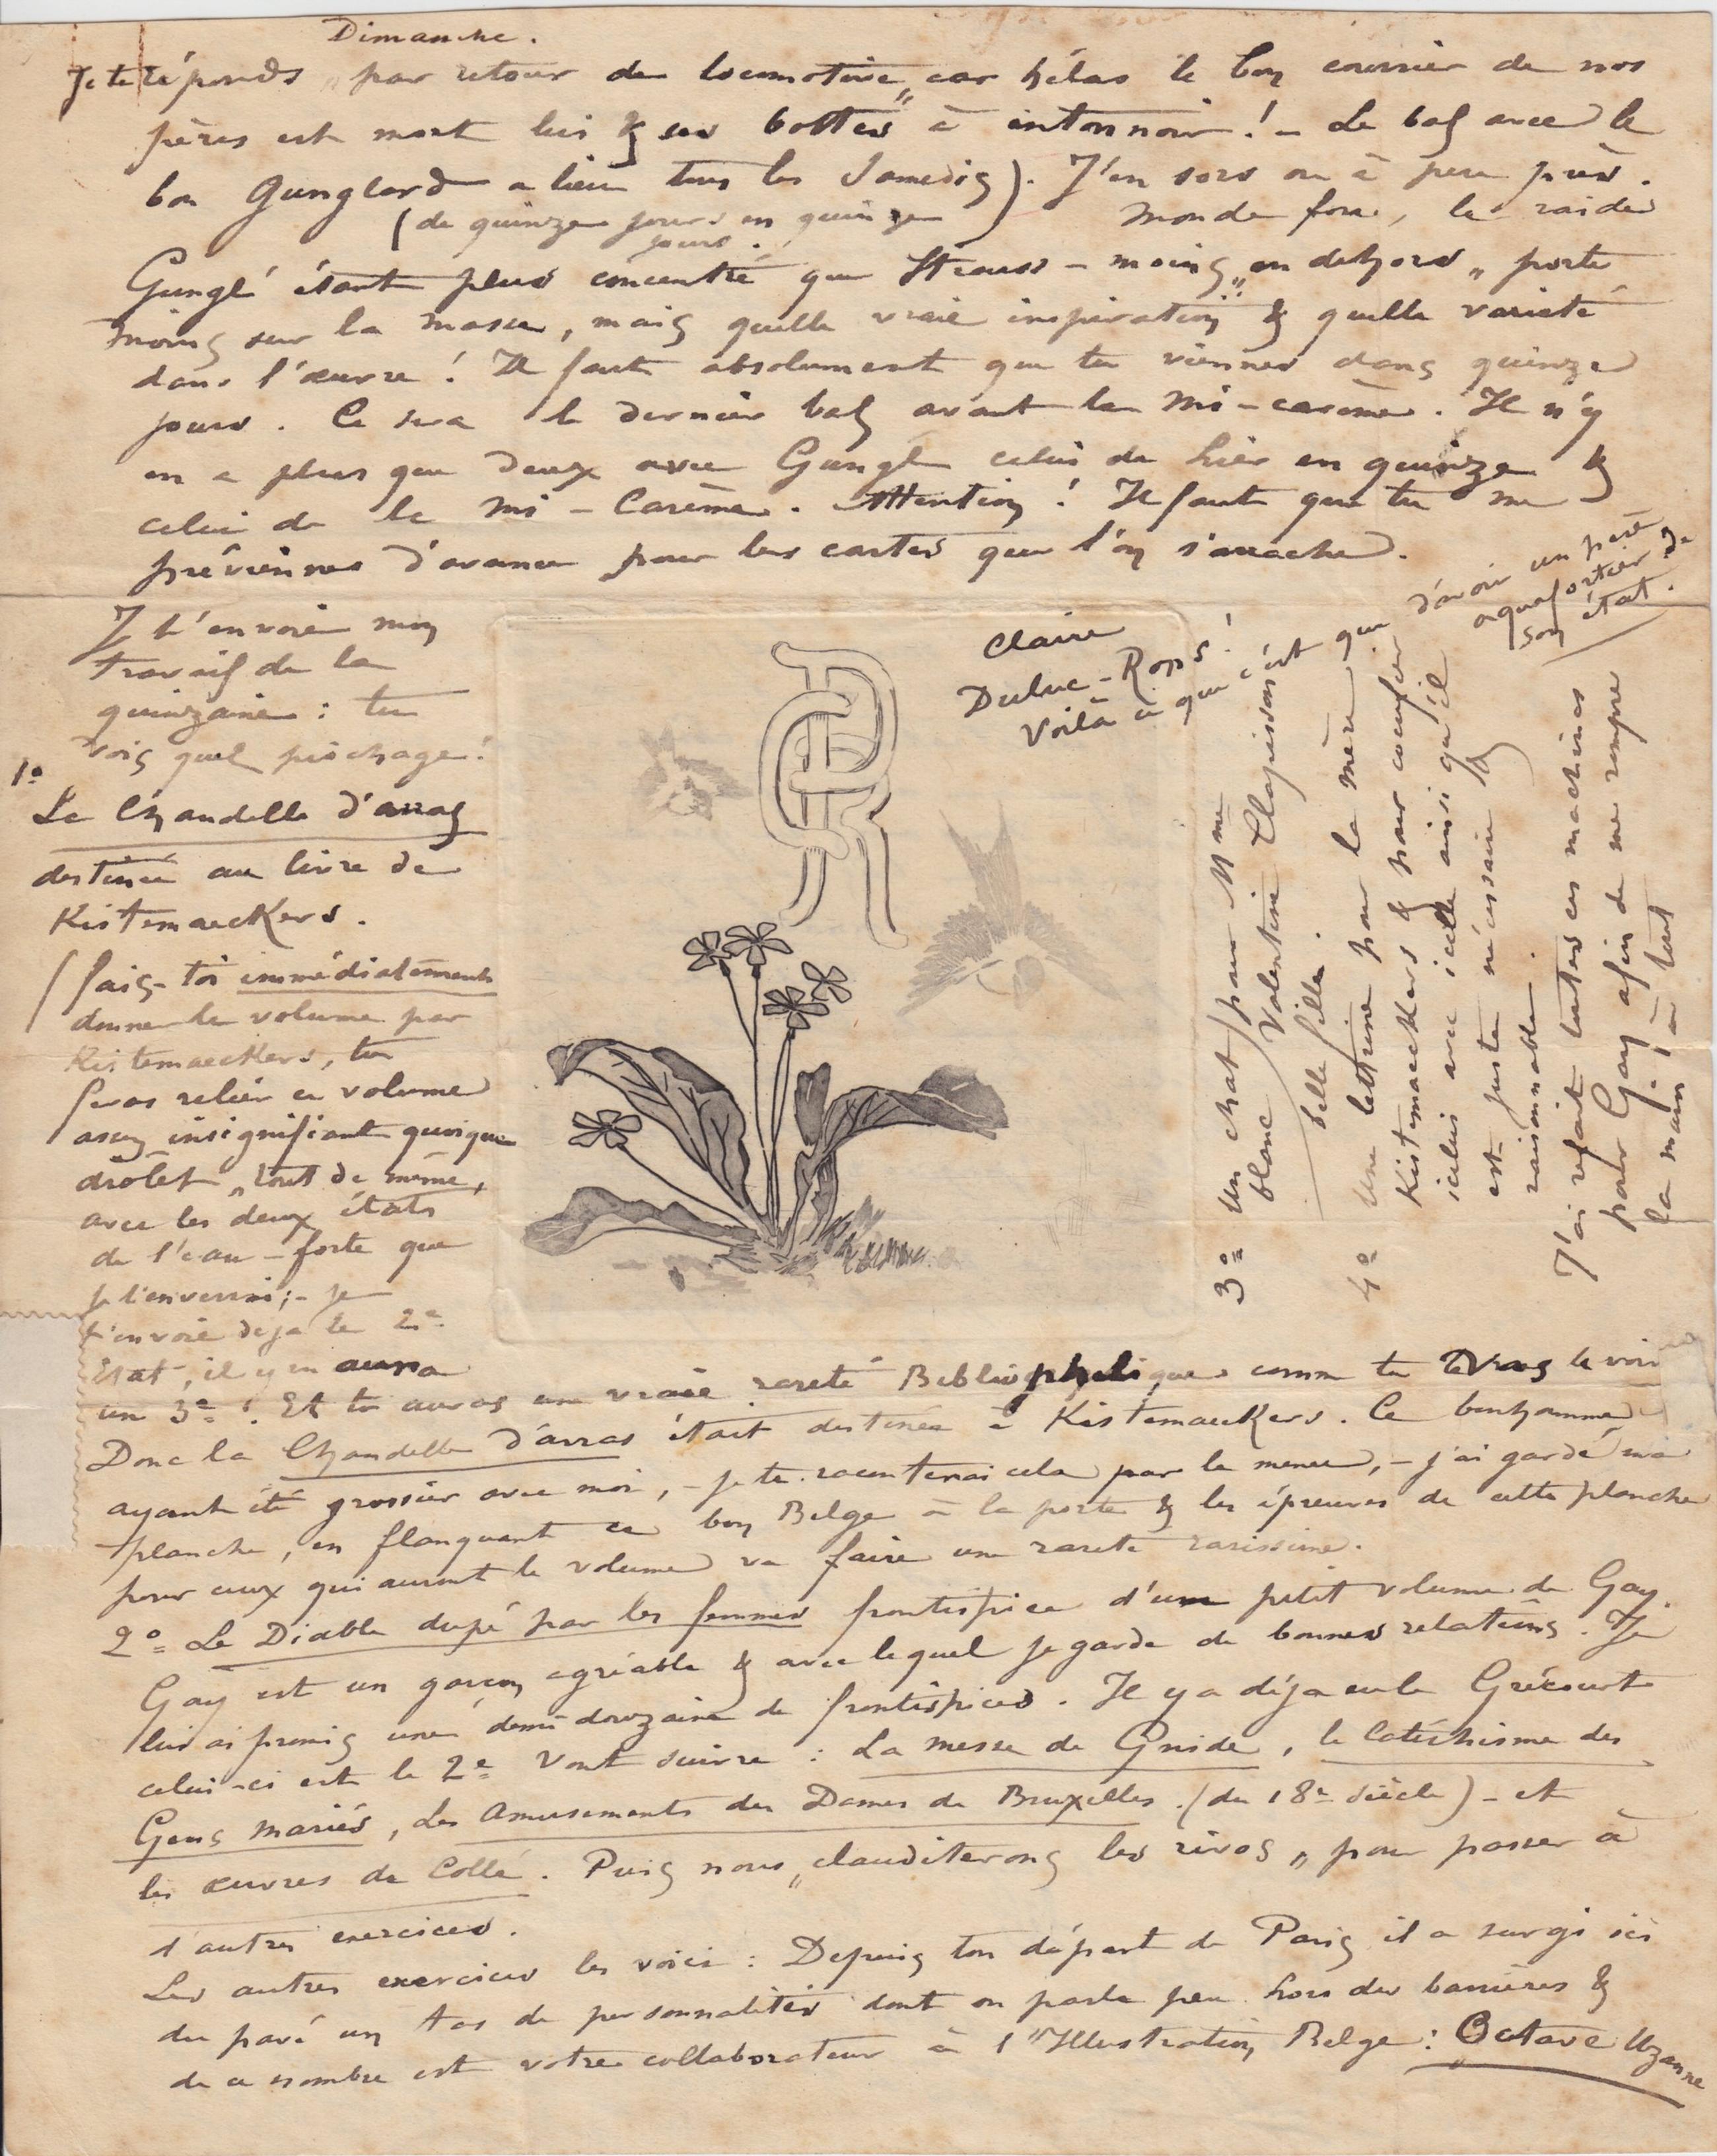 Dimanche.
Je te réponds "par retour de locomotive" car hélas le bon courrier de nos
pères est mort lui & ses bottes à entonnoir ! – Le bal avec le
bon Gunglard a lieu tous les Samedis). J'en sors ou à peu près.
(de quinze jours en quinze
jours.
Monde fou, les raides
Gunglé étant plus concentré que Strauss – moins "en dehors" porte
moins sur la masse, mais quelle vraie inspiration & quelle variété
dans l'œuvre ! Il faut absolument que tu viennes dans quinze
jours. Ce sera le dernier bal avant la Mi-carême. Il n'y
en a plus que deux avec Gunglé celui de hier en quinze &
celui de la Mi-Carême. Attention ! Il faut que tu me
préviennes d'avance pour les cartes que l'on s'arrache.
Je t'envoie mon
travail de la
quinzaine : tu
vois quel piochage !
1º
La Chandelle d'arras
destinée au livre de
Kistemaeckers.
(fais-toi immédiatement
donner le volume par
Kistemaeckers, tu
feras relier ce volume
assez insignifiant quoique
drôlet "tout de même,
avec les deux états
de l'eau-forte que
je t'enverrai ;- je
t'envoie déjà le 2e
Etat, il y en aura
un 3e ! Et tu auras une vraie rareté Bibliophilique comme tu devras le voir
Donc la Chandelle d'arras était destinée à Kistemaeckers. Ce bonhomme
ayant été grossier avec moi, – je te raconterai cela par le menu, – j'ai gardé ma
planche, en flanquant ce bon Belge à la porte & les épreuves de cette planche
pour ceux qui auront le volume va faire une rareté rarissime.
2º Le Diable dupé par les femmes frontispice d'un petit volume de Gay.
Gay est un garçon agréable & avec lequel je garde de bonnes relations. Je
lui ai promis une demi douzaine de frontispices. Il y a déjà eu le Grécourt
celui-ci est le 2e Vont suivre : La messe de Gnide, le Catéchisme des
Gens mariés, Les Amusements des Dames de Bruxelles. (du 18e siècle) – et
les œuvres de Collé. Puis nous "clauditerons les rivos" pour passer à
d'autres exercices.
Les autres exercices les voici : Depuis ton départ de Paris il a surgi ici
du pavé un tas de personnalités dont on parle peu hors des barrières &
de ce nombre est votre collaborateur à l'Illustration Belge : Octave Uzanne
Claire
Duluc-Rops !
Voilà ce que c'est que d'avoir un père
aquafortiste de
son état.
3º Un chat pour Mme
blanc Valentine Clapisson
belle fille.
4º Une lettrine pour la mère
Kistemaeckers & pour coiffer
icelui avec icelle ainsi qu'il
est juste nécessaire &
raisonnable.
J'ai refait toutes ces machines
pour Gay afin de me rompre
la main à tout